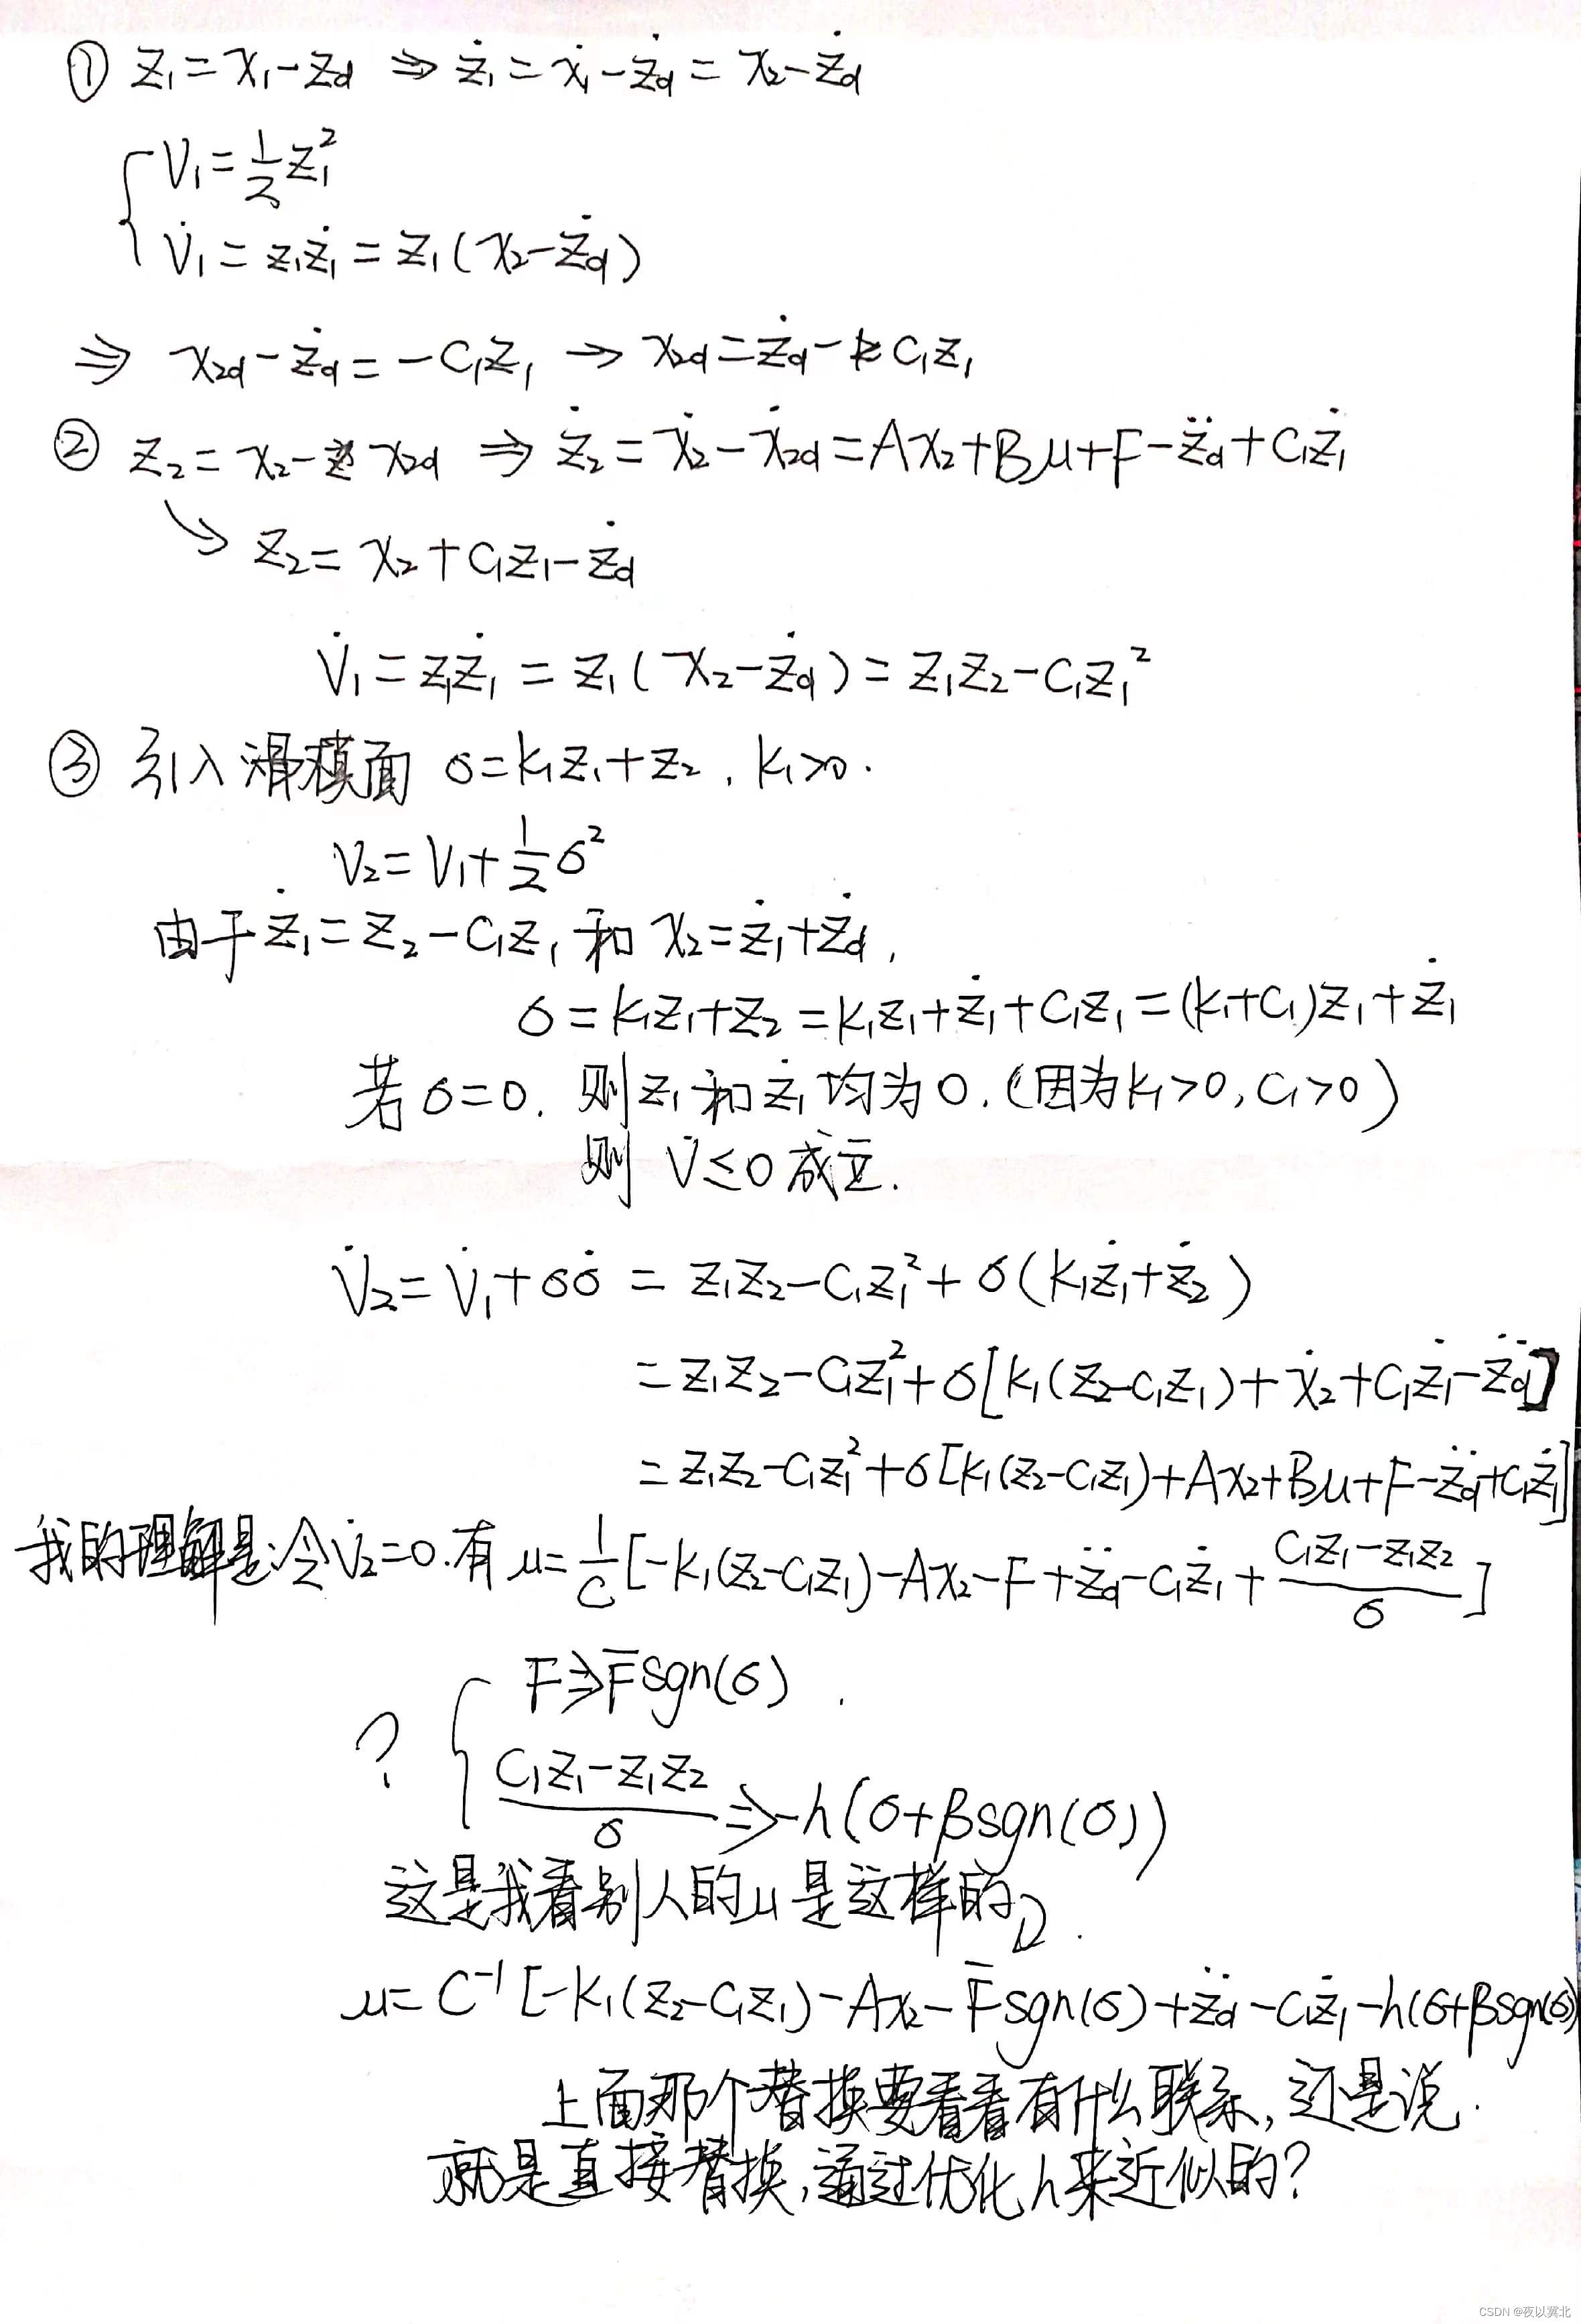 ① z₁=x₁-z_d ⇒ ż₁=ẋ₁-ż_d=x₂-ż_d
{ V₁=1/2 z₁²
V̇₁=z₁ż₁=z₁(x₂-ż_d)
⇒ x₂d-ż_d=-C₁z₁ → x₂d=ż_d-C₁z₁
② z₂=x₂-x₂d ⇒ ż₂=ẋ₂-ẋ₂d=Ax₂+Bu+F-z̈_d+C₁ż₁
↘ z₂=x₂+C₁z₁-ż_d
V̇₁=z₁ż₁=z₁(x₂-ż_d)=z₁z₂-C₁z₁²
③ 引入滑模面 σ=k₁z₁+z₂,k₁>0.
V₂=V₁+1/2 σ²
由于ż₁=z₂-C₁z₁和 x₂=ż₁+ż_d,
σ=k₁z₁+z₂=k₁z₁+ż₁+C₁z₁=(k₁+C₁)z₁+ż₁
若σ=0. 则z₁和ż₁均为0.(因为k₁>0,C₁>0)
则 V̇≤0成立.
V̇₂=V̇₁+σσ̇=z₁z₂-C₁z₁²+σ(k₁ż₁+ż₂)
=z₁z₂-C₁z₁²+σ[k₁(z₂-C₁z₁)+ẋ₂+C₁ż₁-z̈_d]
=z₁z₂-C₁z₁²+σ[k₁(z₂-C₁z₁)+Ax₂+Bu+F-z̈_d+C₁ż₁]
我的理解是:令V̇₂=0.有 u=1/C[-k₁(z₂-C₁z₁)-Ax₂-F+z̈_d-C₁ż₁+(C₁z₁-z₁z₂)/σ]
? { F⇒F̄sgn(σ).
(C₁z₁-z₁z₂)/σ ⇒ -h(σ+βsgn(σ))
这是我看别人的u是这样的
u=C⁻¹[-k₁(z₂-C₁z₁)-Ax₂-F̄sgn(σ)+z̈_d-C₁ż₁-h(σ+βsgn(σ)
上面那个替换要看看有什么联系,还是说.
就是直接替换,通过优化h来近似的?
CSDN @夜以冀北